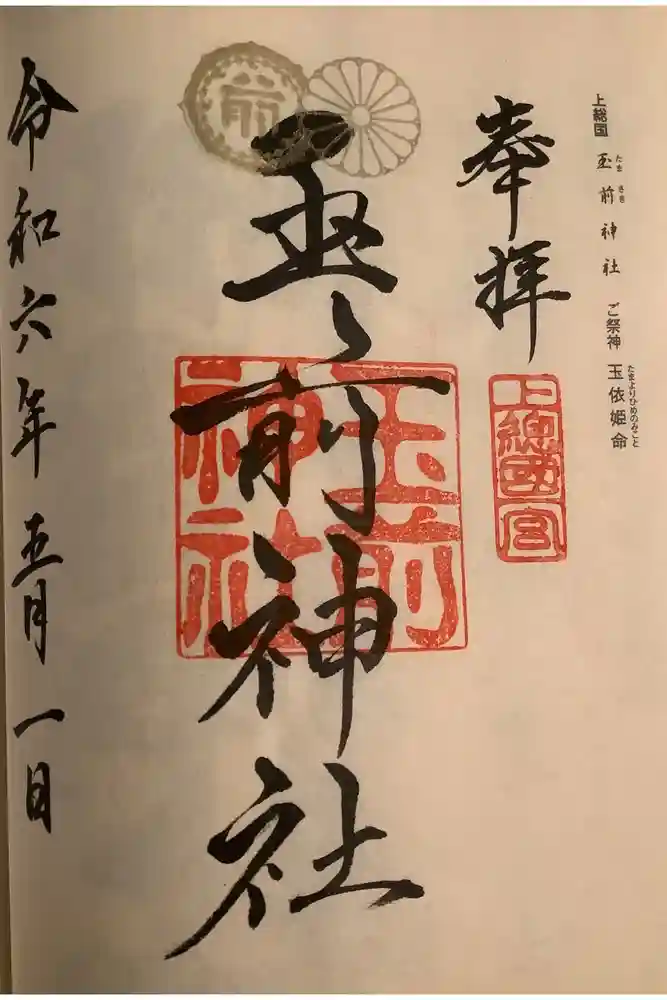 上総国 玉前神社 ご祭神 玉依姫命
たま さき
たまよりひめのみこと
奉拝
上總國一宮
前
玉前神社
玉前神社
令和六年 五月 一日